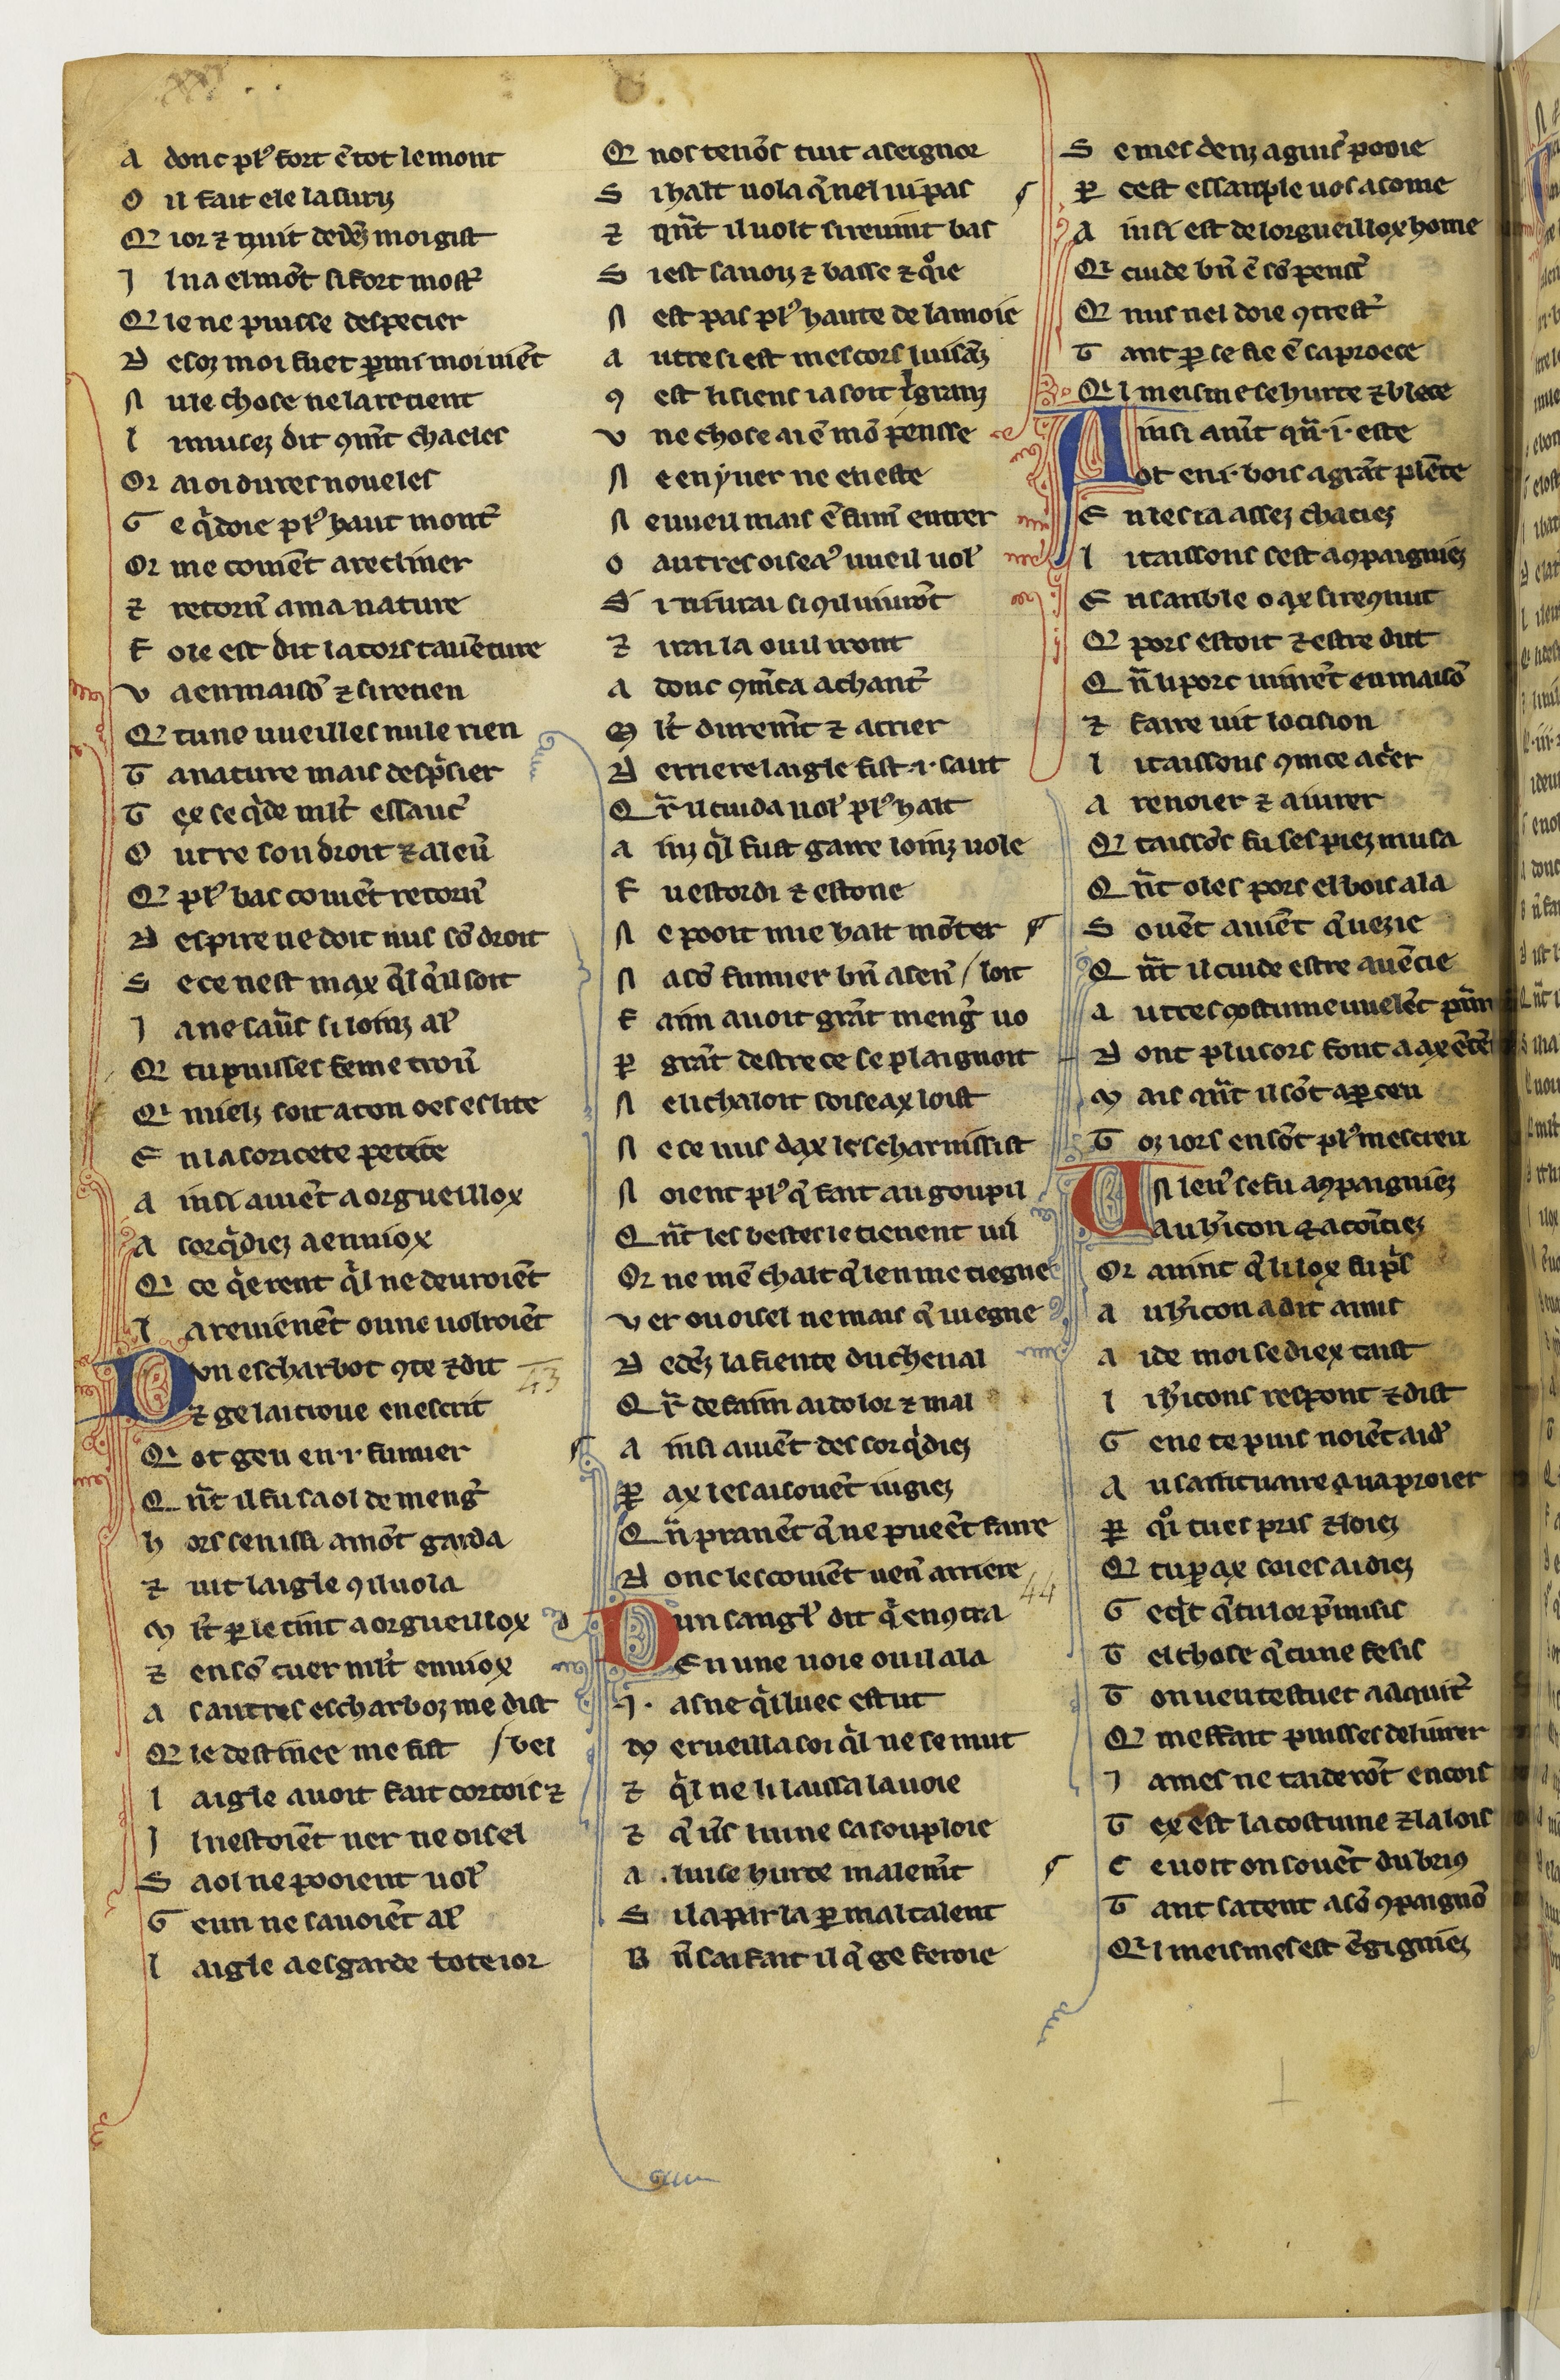 A donc pl' fort ē tot le mont
O il fait ele la suriz
Q' ior ⁊ nuit dedēz moi gist
I l na el mōt si fort most'
Q' ie ne puisse despecier
D esoz moi fuet ꝑmi moi uiēt
N ule chose ne la retient
L i muiez dit 9m̄t chaeles
Or ai oi dures noueles
G e q'doie pl' haut mont'
Or me couiēt a recliner
⁊ retorn' a ma nature
F ole est dit la tors tauēture
V a en maisō ⁊ si retien
Q' tu ne uueilles nule rien
T a nature mais desp'sier
T ex se q'de ml't essauc'
O utre son droit ⁊ aleu'
Q' pl' bas couiēt retorn'
D espire ne doit nus sō droit
S e ce nest max q'l q'l soit
I a ne saur' si loinz al'
Q' tu puisses feme trou'
Q' mielz soit a ton oes eslite
E n la soricete petite
A insi auiēt a orgueillox
A sorq'diez a enuiox
Q' ce q'erent q'l ne deuroiēt
L a reuienēt ou ne uolroiēt
D un escharbot 9te ⁊ dit
⁊ ge lai troue en escrit
Q' ot geu en .i. fumier
Q n̄t il fu saol de meng'
H ors sen issi amōt garda
⁊ uit laigle 9 il uola
M l't ꝑ le tint a orgueillox
⁊ en sō cuer ml't enuiox
A s autres escharboz me dist
Q' le destinee me fist / bel
L aigle auoit fait cortois ⁊
I l nestoiēt uer ne oisel
S aol ne pooient uol'
G eun ne sauoiēt al'
L aigle a esgarde tote ior
Q' nos tenōs tuit a seignor
S i halt uola q' nel ui pas
⁊ qn̄t il uolt si reuint bas
S i est sa uoiz ⁊ basse ⁊ q°ie
N est pas pl' haute de la moie
A utresi est mes cors luisāz
9 est li siens ia soit granz
V ne chose ai ē mō pensse
N e en yuer ne en este
N e uueu mais ē fumi' entrer
O autres oisea' uueil uol'
⁊ irai la ou il iront
A donc 9m̄ca a chant'
M l't durem̄t ⁊ a crier
D erriere laigle fist .i. saut
Q r' il cuida uol' pl' halt
A inz q'l fust gaire loinz uole
F u estordi ⁊ estone
N e pooit mie halt mōter
N a sō fumier bn̄ asen' / loit
F aim auoit grāt meng' uo
P grāt destrece se plaignoit
N e li chaloit soiseax loist
N e ce nus dax les charnissist
N oient pl' q' fait au goupil
Q n̄t les bestes le tienent uil
Or ne mē chalt q' len me tiegne
V er ou oisel ne mais q' uiegne
D edēz la fiente du cheual
Q r' de faim ai dolor ⁊ mal
A insi auiēt des sorq'diez
P ax les ai souēt iugiez
Q n̄ pranēt q' ne pueēt faire
D onc les couiēt uen' arriere
D un sangl' dit q' en9tra
En une uoie ou il ala
.I. asne q' iluec estut
M erueilla soi q'l ne se mut
⁊ q'l ne li laissa la uoie
A lui se hurte malem̄t
S i lapar la ꝑ maltalent
B n̄ sai fait il q' ge feroie
S e mes denz aguis' pooie
P cest essample uos asome
A insi est de lorgueillox home
Q' cuide bn̄ ē sō penss'
Q' nus nel doie 9trest'
T ant ꝑ se fie ē sa proece
Q' l meisme se hurte ⁊ blece
A insi auīt qn̄ .i. este
ot en .i. bois a grāt plēte
E n les ia assez chaciez
L i taissons sest a9paigniez
E nsamble o ax si re9nut
Q' pors estoit ⁊ estre dut
Q n̄ li porc uinrēt en maisō
⁊ faire uit locision
L i taissons 9mce a c'er
A renoier ⁊ a iurer
Q' taissōs fu ses piez musa
Q n̄t o les pors el bois ala
S ouēt auiēt q' uezie
Q n̄t il cuide estre auēcie
D ont plusors font
M ais qn̄t il sōt aꝑceu
T oz iors en sōt pl' mescreu
V N leu' se fu a9paigniez
au h'icon ⁊ acoītiez
Or auint q' li lox fu p's
A u h'icon a dit amis
A ide moi se diex taist
L i h'icons respont ⁊ dist
G e ne te puis noiēt aid'
A u saintuaire q ua proier
P q°i tu es pris ⁊ loiez
Q' tu par ax soies aidiez
G e q't q' tu lor p'mesis
T el chose q' tu ne fesis
T on ueu testuet a aquit'
Q' mesfait puisses deliurer
I a mes ne taiderōt encois
T ex est la costume ⁊ la lois
C e uoit on souēt du briq
T ant satent a sō 9paignō
Q' l meismes est ēgigniez
43
44